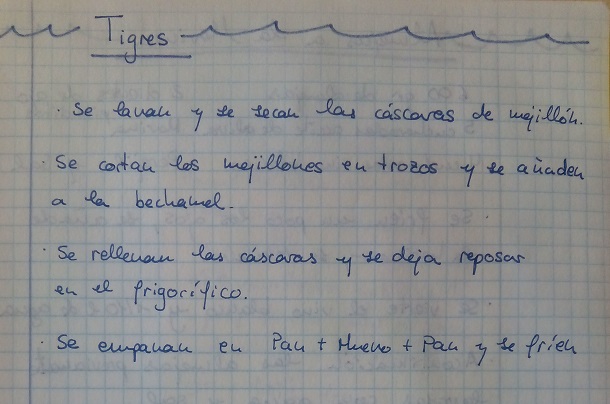 Tigres
· Se lavan y se secan las cáscaras de mejillón.
· Se cortan los mejillones en trozos y se añaden
a la bechamel.
· Se rellenan las cáscaras y se deja reposar
en el frigorífico.
· Se empanan en Pan + Huevo + Pan y se fríen